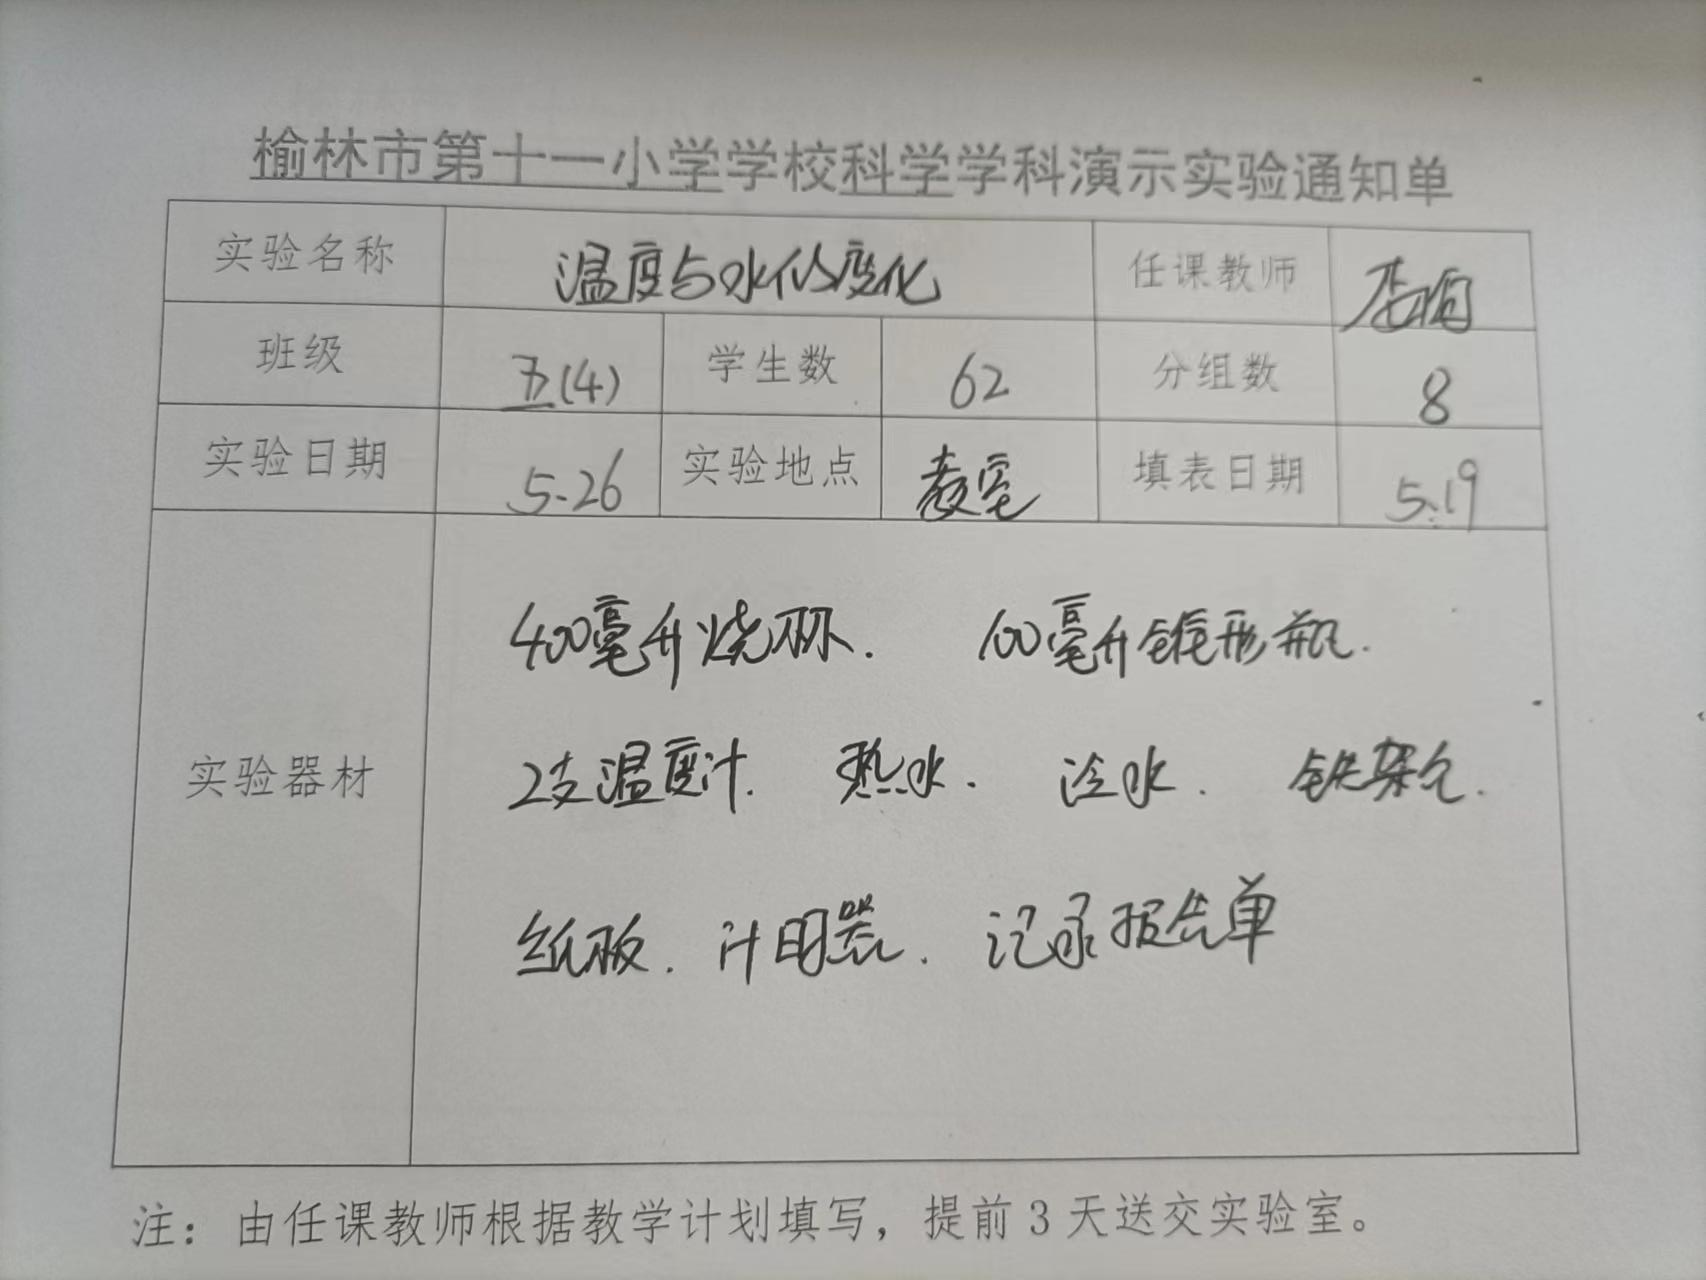 榆林市第十一小学学校科学学科演示实验通知单
实验名称 温度与水的变化 任课教师
班级 五(4) 学生数 62 分组数 8
实验日期 5.26 实验地点 教室 填表日期 5.19
实验器材
400毫升烧杯. 100毫升锥形瓶.
2支温度计. 热水. 冷水. 铁架台.
纸板. 计时器. 记录报告单
注：由任课教师根据教学计划填写，提前3天送交实验室。